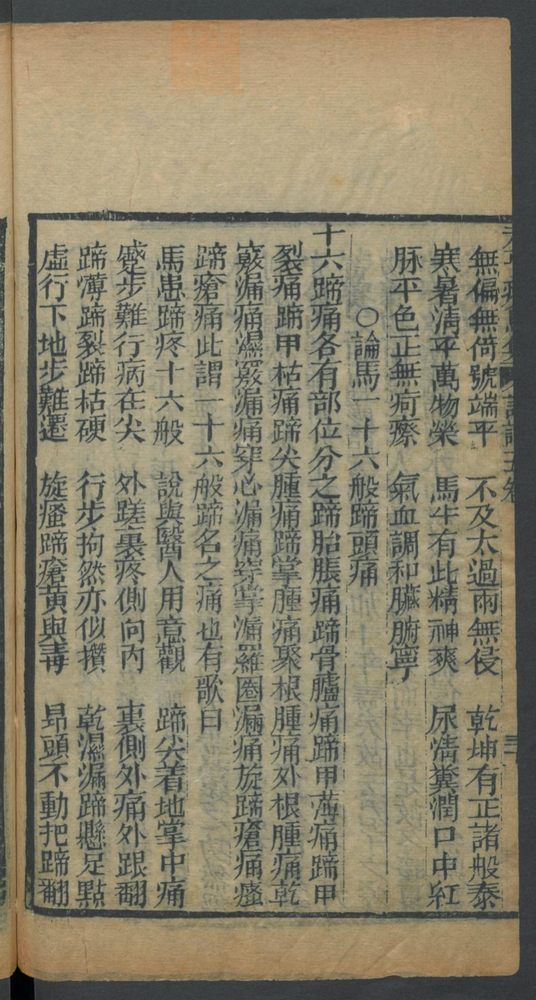 無偏無倚號端平　不及太過兩無侵　乾坤有正諸般泰
寒暑淸平萬物榮　馬牛有此精神爽　尿淸糞潤口中紅
脉平色正無疴瘵　氣血調和臟腑寧
〇論馬一十六般蹄頭痛
十六蹄痛各有部位分之蹄胎脹痛蹄骨臚痛蹄甲薄痛蹄甲
裂痛蹄甲枯痛蹄尖腫痛蹄掌腫痛聚根腫痛外根腫痛乾
竅漏痛濕竅漏痛穿心漏痛穿掌漏羅圈漏痛旋蹄瘡痛瘙
蹄瘡痛此謂一十六般蹄名之痛也有歌曰
馬患蹄疼十六般　說與醫人用意觀　蹄尖着地掌中痛
蹙步難行病在尖　外蹉裏疼側向內　裏側外痛外跟翻
蹄薄蹄裂蹄枯硬　行步拘然亦似攢　乾濕漏蹄懸足點
虛行下地步難還　旋瘙蹄瘡黃與毒　昻頭不動把蹄翻